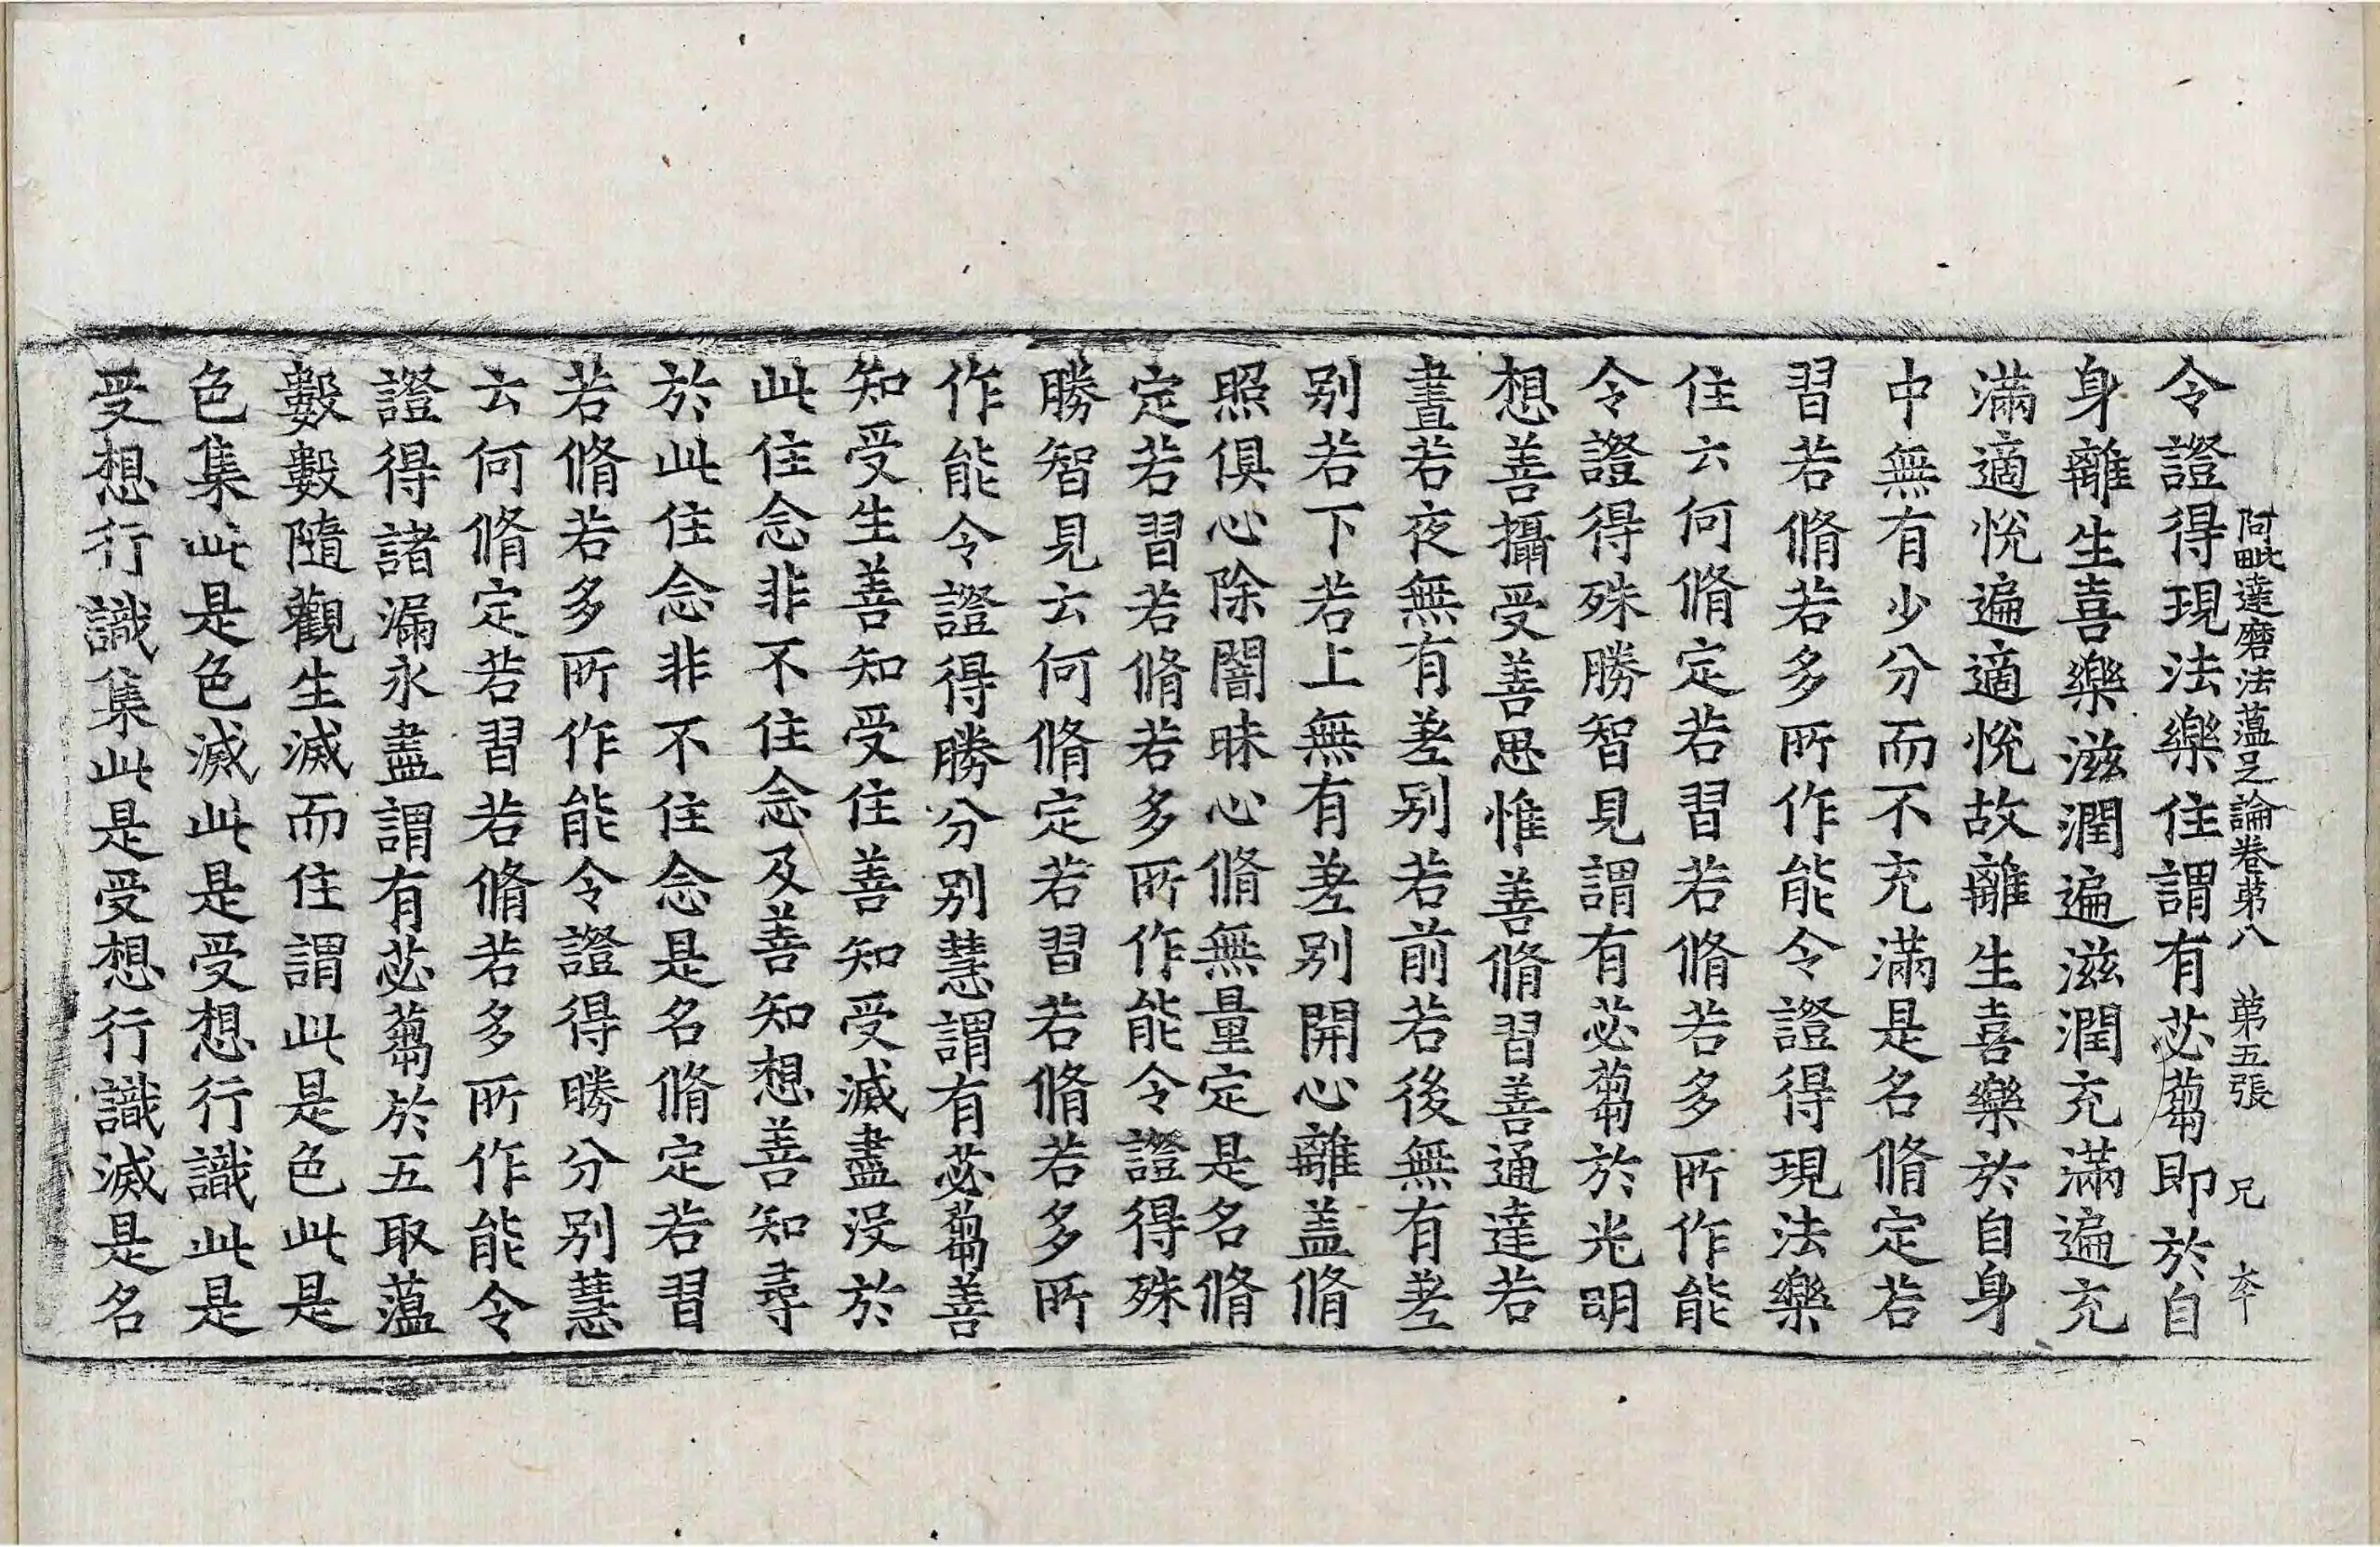 阿毗達磨法蘊足論卷第八 第五張 兄
令證得現法樂住謂有苾蒭即於自
身離生喜樂滋潤遍滋潤充滿遍充
滿適悅遍適悅故離生喜樂於自身
中無有少分而不充滿是名脩定若
習若脩若多所作能令證得現法樂
住云何脩定若習若脩若多所作能
令證得殊勝智見謂有苾蒭於光明
想善攝受善思惟善脩習善通達若
晝若夜無有差別若前若後無有差
別若下若上無有差別開心離盖脩
照俱心除闇昧心脩無量定是名脩
定若習若脩若多所作能令證得殊
勝智見云何脩定若習若脩若多所
作能令證得勝分別慧謂有苾蒭善
知受生善知受住善知受滅盡沒於
此住念非不住念及善知想善知尋
於此住念非不住念是名脩定若習
若脩若多所作能令證得勝分別慧
云何脩定若習若脩若多所作能令
證得諸漏永盡謂有苾蒭於五取蘊
數數隨觀生滅而住謂此是色此是
色集此是色滅此是受想行識此是
受想行識集此是受想行識滅是名